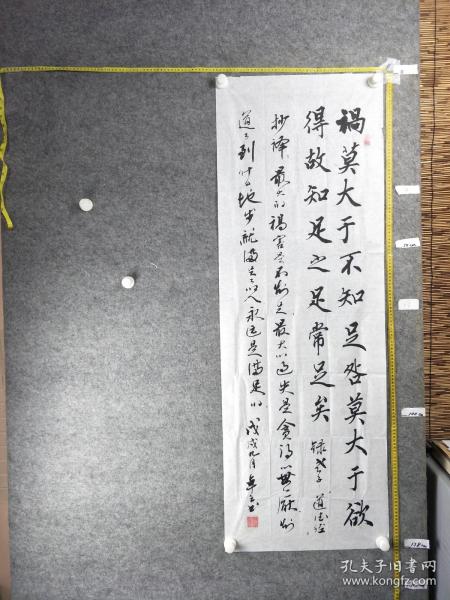 禍莫大于不知足咎莫大于欲
得故知足之足常足矣 錄老子 道德经
抄譯 最大的禍害是不知足最大的过失是貪得的無厭知
道了到什么地步就滿足了的人永远是滿足的 戊戌九月
孔夫子旧书网
www.kongfz.com